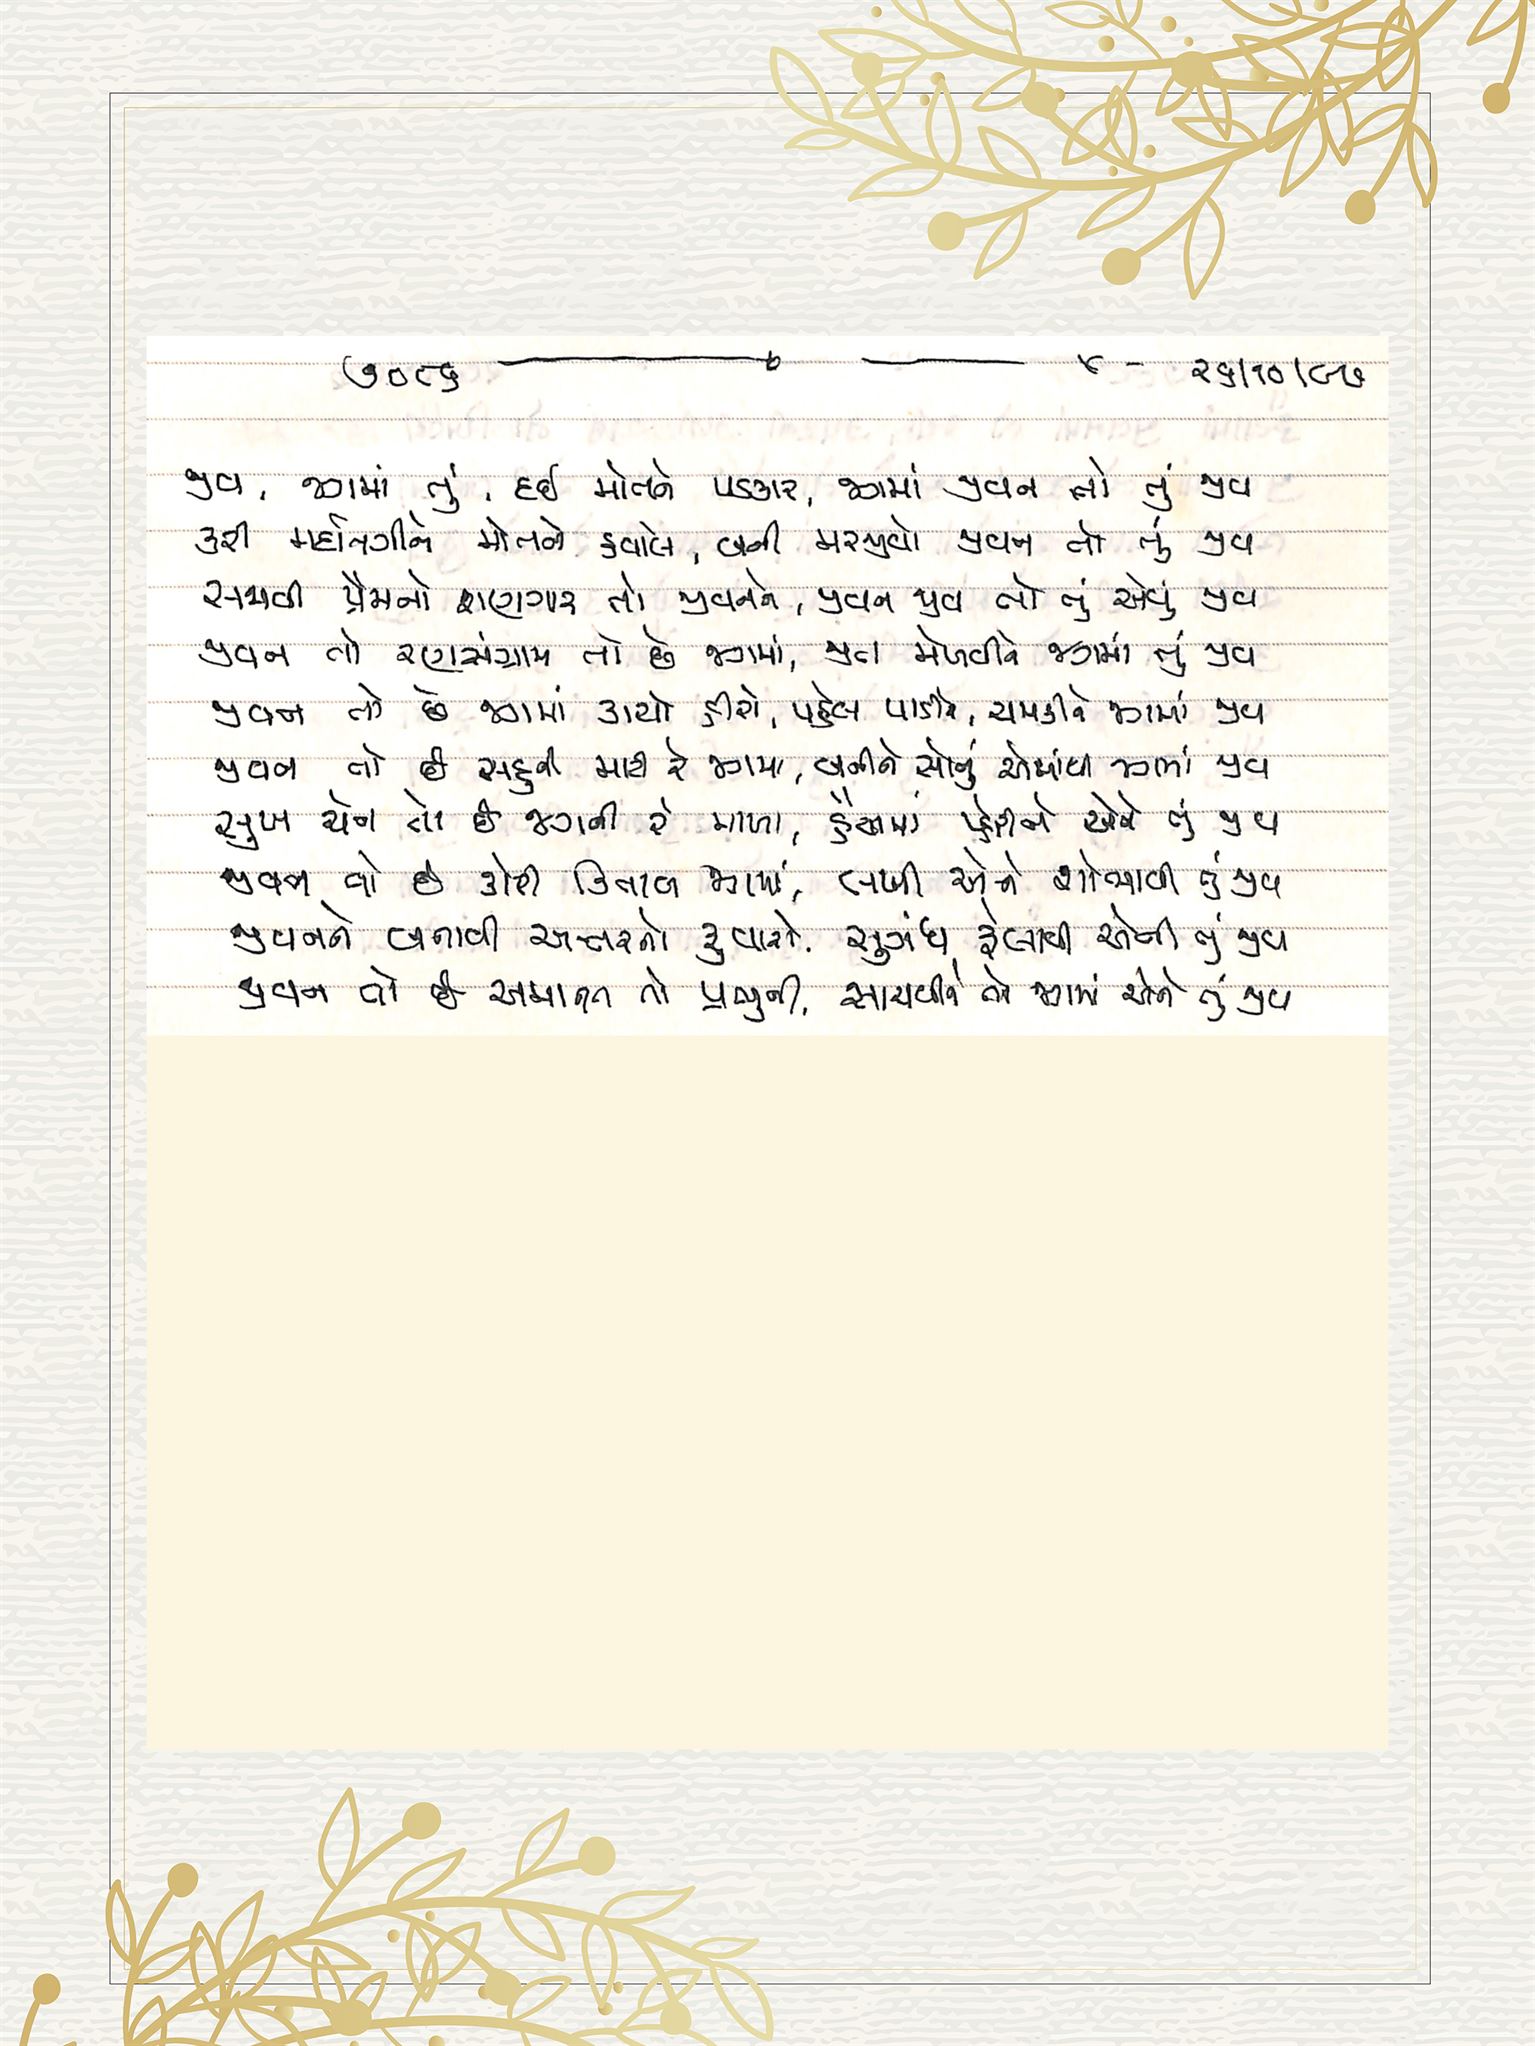 ૭૦૮૬ ૪ - ૨૬/૧૦/૯૭
જીવ, જગમાં તું, દઈ મોતને પડકાર, જગમાં જીવન તો તું જીવ
કરી મર્દાનગીને મોતને હવાલે, બની મરજીવો જીવન તો તું જીવ
સજાવી પ્રેમનો શણગાર તો જીવનને, જીવન જીવ તો તું એવું જીવ
જીવન તો રણસંગ્રામ તો છે જગમાં, જીત મેળવીને જગમાં તું જીવ
જીવન તો છે જગમાં કાચો હીરો, પહેલ પાડીને, ચમકીને જગમાં જીવ
જીવન તો છે સહુની માટી રે જગમાં, બનીને સોનું એમાંથી જગમાં જીવ
સુખ ચેન તો છે જગની રે માળા, હૈયામાં પહેરીને એને તું જીવ
જીવન તો છે કોરી કિતાબ જગમાં, લખી એને શોભાવી તું જીવ
જીવનને બનાવી અત્તરનો ફુવારો, સુગંધ ફેલાવી એની તું જીવ
જીવન તો છે અમાનત તો પ્રભુની, સાચવીને તો જગમાં એને તું જીવ